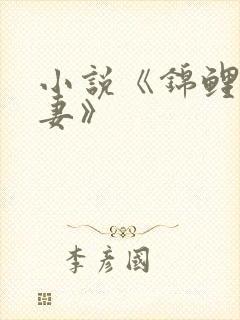 小説《錦鲤
妻》
李彦國